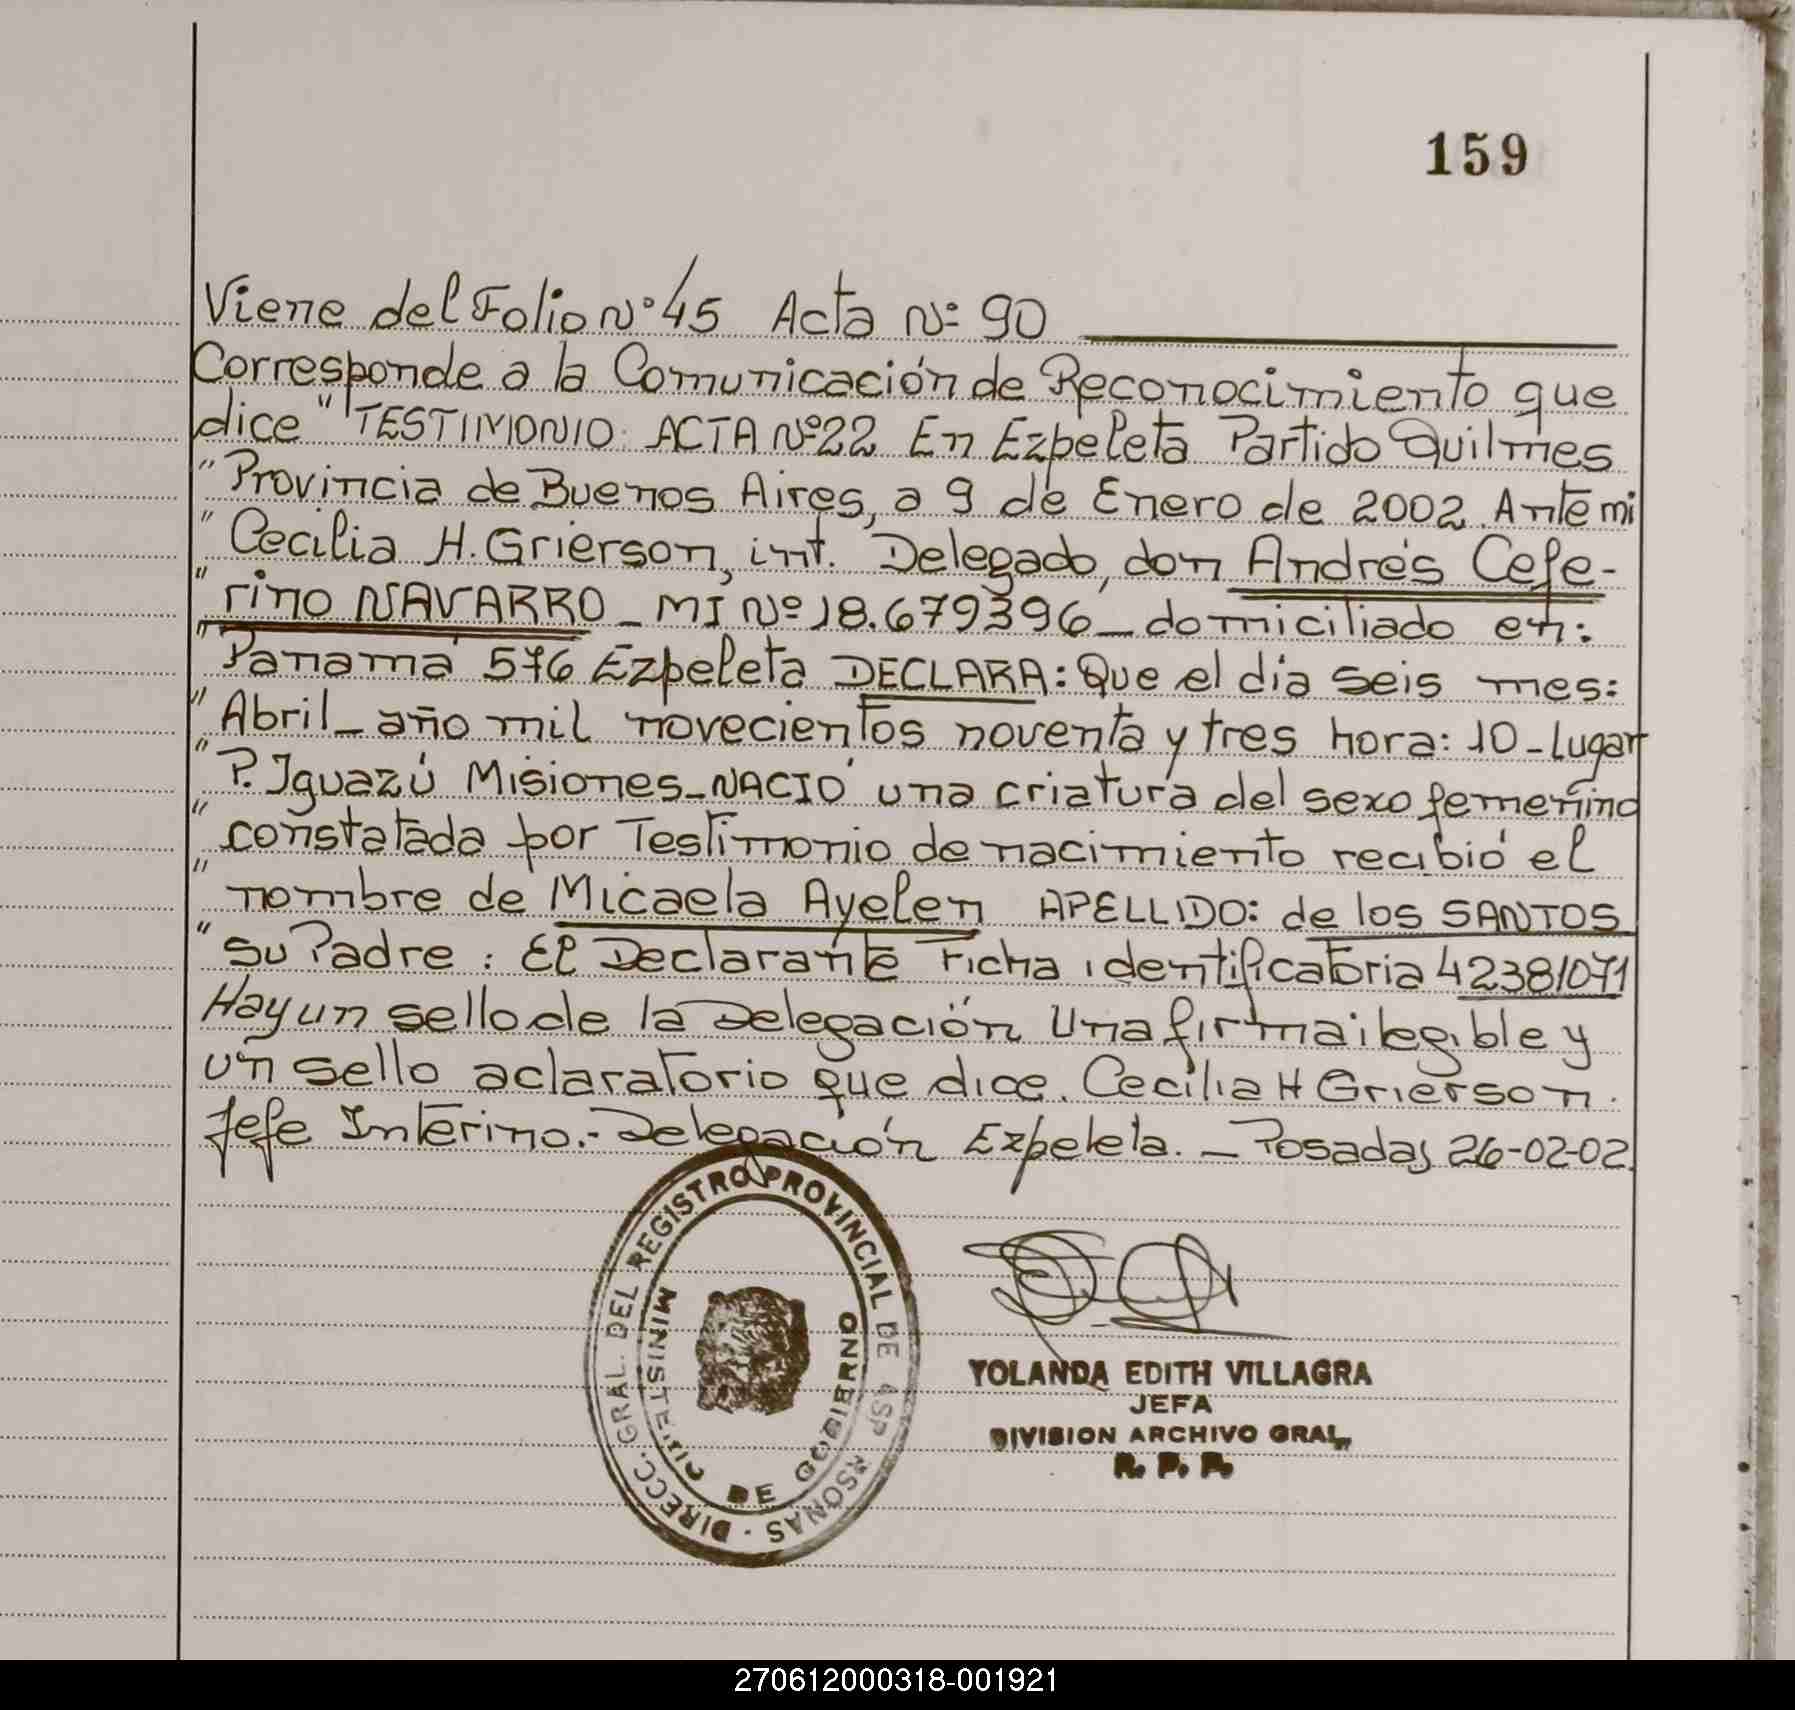 159
Viene del Folio Nº 45 Acta Nº 90
Corresponde a la Comunicación de Reconocimiento que
dice " TESTIMONIO: ACTA Nº22 En Ezpeleta Partido Quilmes
" Provincia de Buenos Aires, a 9 de Enero de 2002. Ante mi
" Cecilia H. Grierson, int. Delegado, don Andrés Cefe-
" rino NAVARRO _ MI Nº 18.679396 _ domiciliado en:
" Panamá 576 Ezpeleta DECLARA: Que el dia seis mes:
" Abril _ año mil novecientos noventa y tres hora: 10 _ Lugar
" P. Iguazú Misiones _ NACIÓ una criatura del sexo femenino
" constatada por Testimonio de nacimiento recibió el
" nombre de Micaela Ayelen APELLIDO: de los SANTOS
" Su Padre : El Declarante Ficha identificatoria 42381071
Hay un sello de la Delegación Una firma ilegible y
un sello aclaratorio que dice. Cecilia H Grierson.
Jefe Interino.- Delegación Ezpeleta. _ Posadas 26-02-02.
DIRECC. GRAL. DEL REGISTRO PROVINCIAL DE
DE GOBIERNO
YOLANDA EDITH VILLAGRA
JEFA
DIVISION ARCHIVO GRAL.
R. P. P.
270612000318-001921